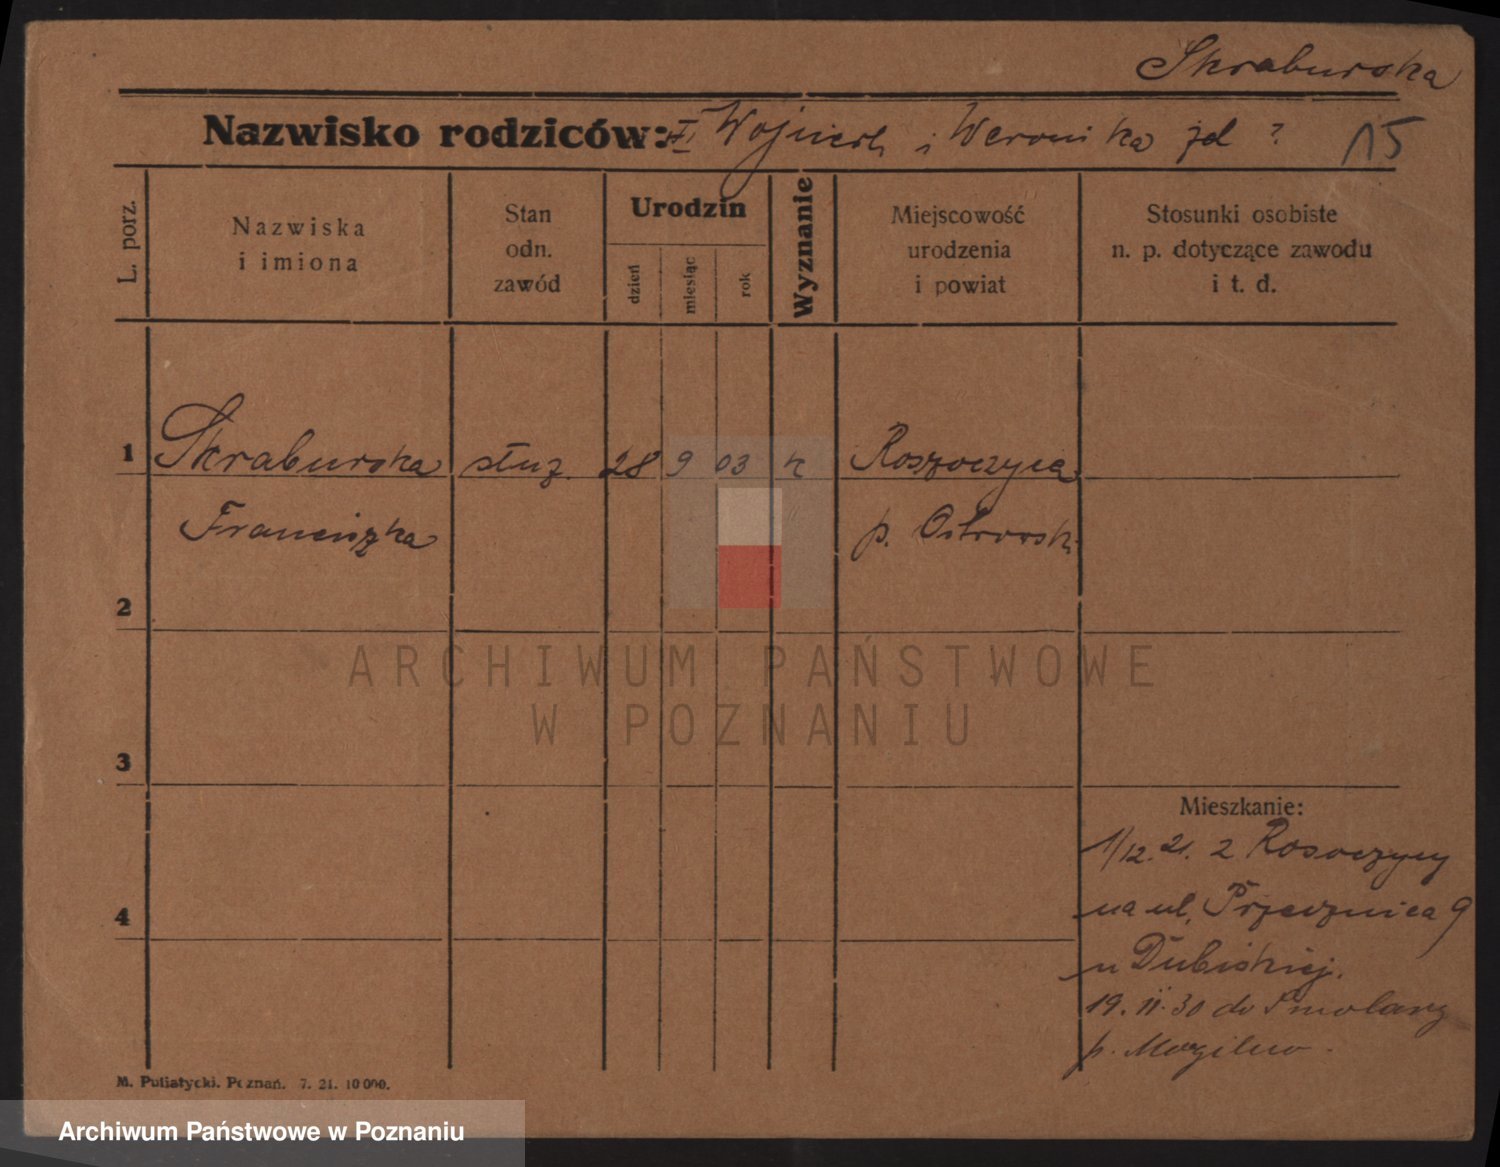 Skraburska
Nazwisko rodziców: Wojciech i Weronika żd ? 15
L. porz.
Nazwiska
i imiona
Stan
odn.
zawód
Urodzin
dzień
miesiąc
rok
Wyznanie
Miejscowość
urodzenia
i powiat
Stosunki osobiste
n. p. dotyczące zawodu
i t. d.
1 Skraburska służ. 28 9 03 k Roszoczyca
Franciszka p. Ostrowsk.
2
3
Mieszkanie:
1/12. 21. z Rososzycy
4
na ul. Przecznica 9
u Dubiskiej.
19. II. 30 do Smolary
p. Mogilno.
M. Putiatycki. Poznań. 7. 21. 10 000.
ARCHIWUM PAŃSTWOWE
W POZNANIU
Archiwum Państwowe w Poznaniu